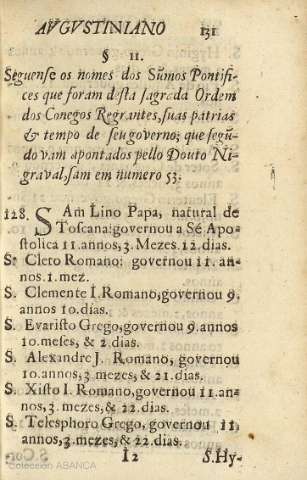 AVGVSTINIANO 131
§ II.
Seguense os nomes dos Sũmos Pontifi-
ces que foram desta sagrada Ordem
dos Conegos Regrantes, suas patrias
& tempo de seu governo; que segũ-
do vam apontados pello Douto Ni-
graval, sam em numero 53.
128. SAm Lino Papa, natural de
Toscana: governou a Sé Apo-
stolica 11. annos, 3. Mezes. 12. dias.
S. Cleto Romano: governou 11. an-
nos. 1. mez.
S. Clemente I. Romano, governou 9.
annos 10. dias.
S. Evaristo Grego, governou 9. annos
10. meses, & 2. dias.
S. Alexandre J. Romano, governou
10. annos, 3 mezes, & 21. dias.
S. Xisto I. Romano, governou 11. an-
nos, 3. mezes, & 22. dias.
S. Telesphoro Grego, governou 11,
annos, 3. mezes, & 22. dias.
I2 S. Hy-
Colección ABANCA